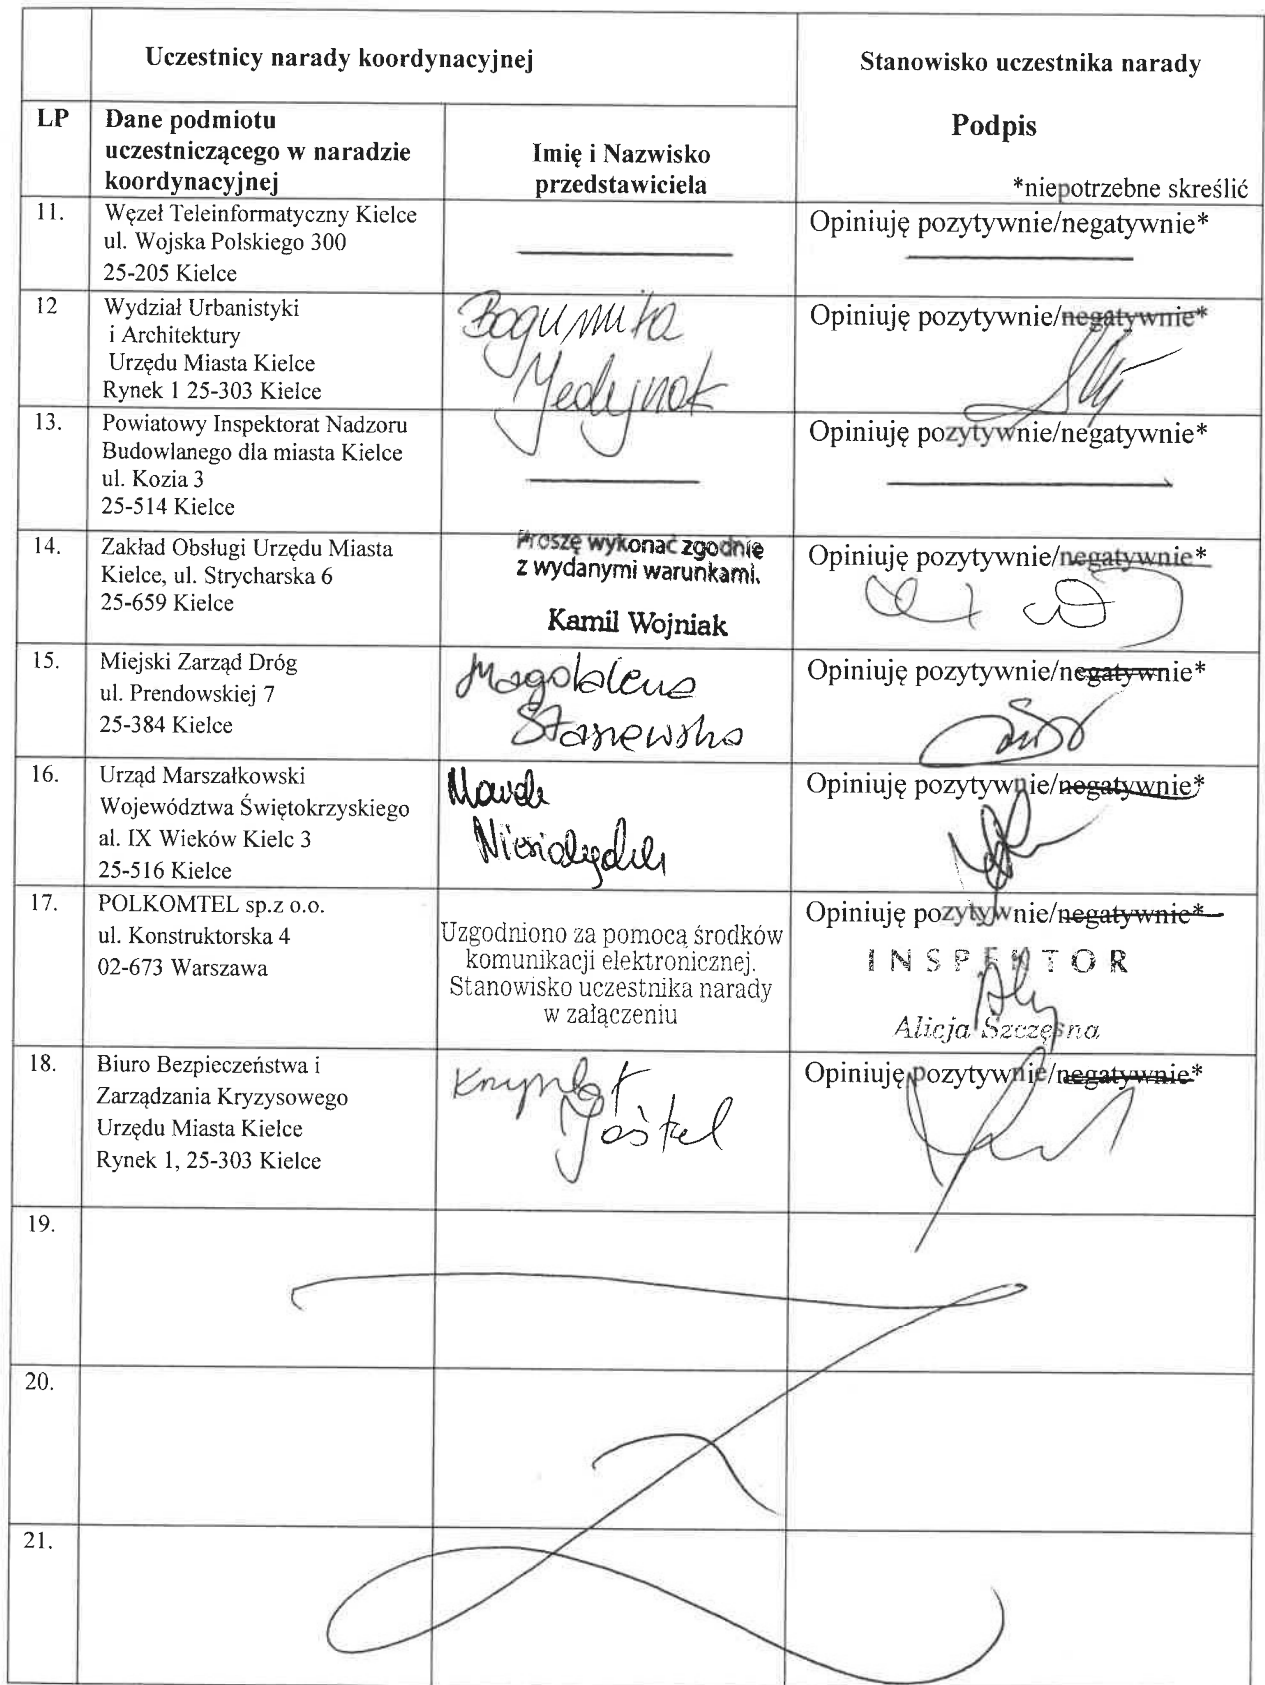 Uczestnicy narady koordynacyjnej
Stanowisko uczestnika narady
Podpis
*niepotrzebne skreślić
LP
Dane podmiotu
uczestniczącego w naradzie
koordynacyjnej
Imię i Nazwisko
przedstawiciela
11.
Węzeł Teleinformatyczny Kielce
ul. Wojska Polskiego 300
25-205 Kielce
Opiniuję pozytywnie/negatywnie*
12
Wydział Urbanistyki
i Architektury
Urzędu Miasta Kielce
Rynek 1 25-303 Kielce
Bogumiła
Jedynak
Opiniuję pozytywnie/negatywnie*
13.
Powiatowy Inspektorat Nadzoru
Budowlanego dla miasta Kielce
ul. Kozia 3
25-514 Kielce
Opiniuję pozytywnie/negatywnie*
14.
Zakład Obsługi Urzędu Miasta
Kielce, ul. Strycharska 6
25-659 Kielce
Proszę wykonać zgodnie
z wydanymi warunkami.
Kamil Wojniak
Opiniuję pozytywnie/negatywnie*
15.
Miejski Zarząd Dróg
ul. Prendowskiej 7
25-384 Kielce
Magdalena
Opiniuję pozytywnie/negatywnie*
16.
Urząd Marszałkowski
Województwa Świętokrzyskiego
al. IX Wieków Kielc 3
25-516 Kielce
Opiniuję pozytywnie/negatywnie*
17.
POLKOMTEL sp.z o.o.
ul. Konstruktorska 4
02-673 Warszawa
Uzgodniono za pomocą środków
komunikacji elektronicznej.
Stanowisko uczestnika narady
w załączeniu
Opiniuję pozytywnie/negatywnie*
INSPEKTOR
Alicja Szczęsna
18.
Biuro Bezpieczeństwa i
Zarządzania Kryzysowego
Urzędu Miasta Kielce
Rynek 1, 25-303 Kielce
Opiniuję pozytywnie/negatywnie*
19.
20.
21.